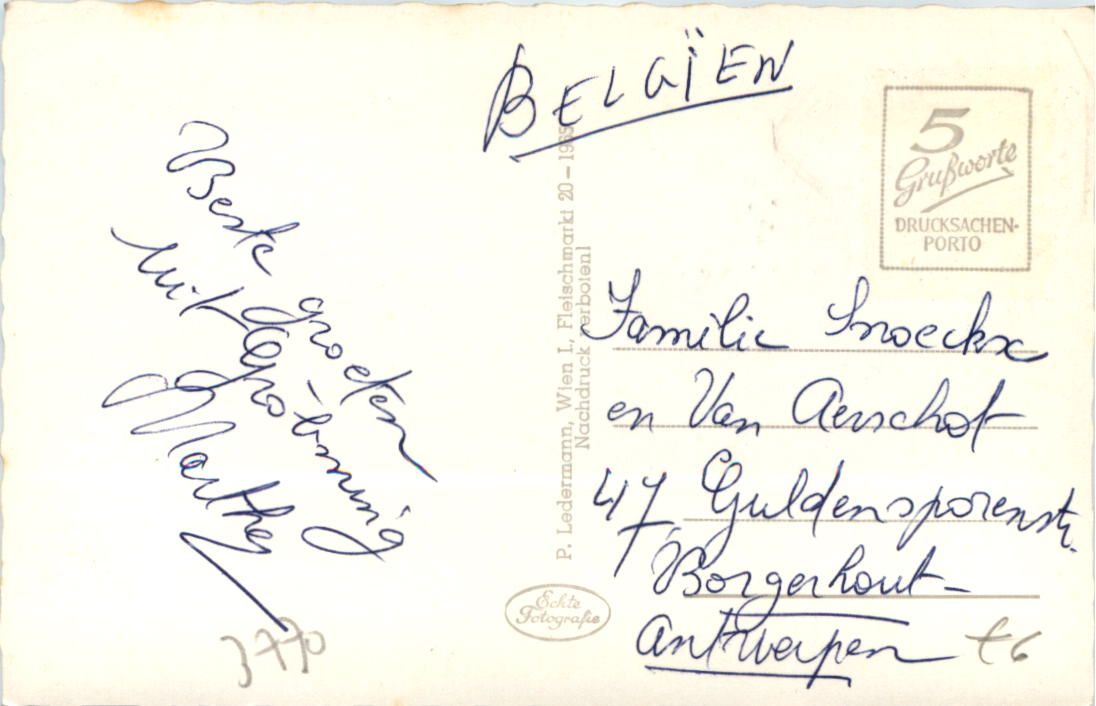 BELGÏEN
Beste groeten
uit Gröbming
Marthe
5
Grußworte
DRUCKSACHEN-
PORTO
P. Ledermann, Wien I., Fleischmarkt 20 – 1965
Nachdruck verboten!
Familie Snoeckx
en Van Aerschot
47, Guldensporenstr.
Borgerhout-
Antwerpen
Echte
Fotografie
3770
€6